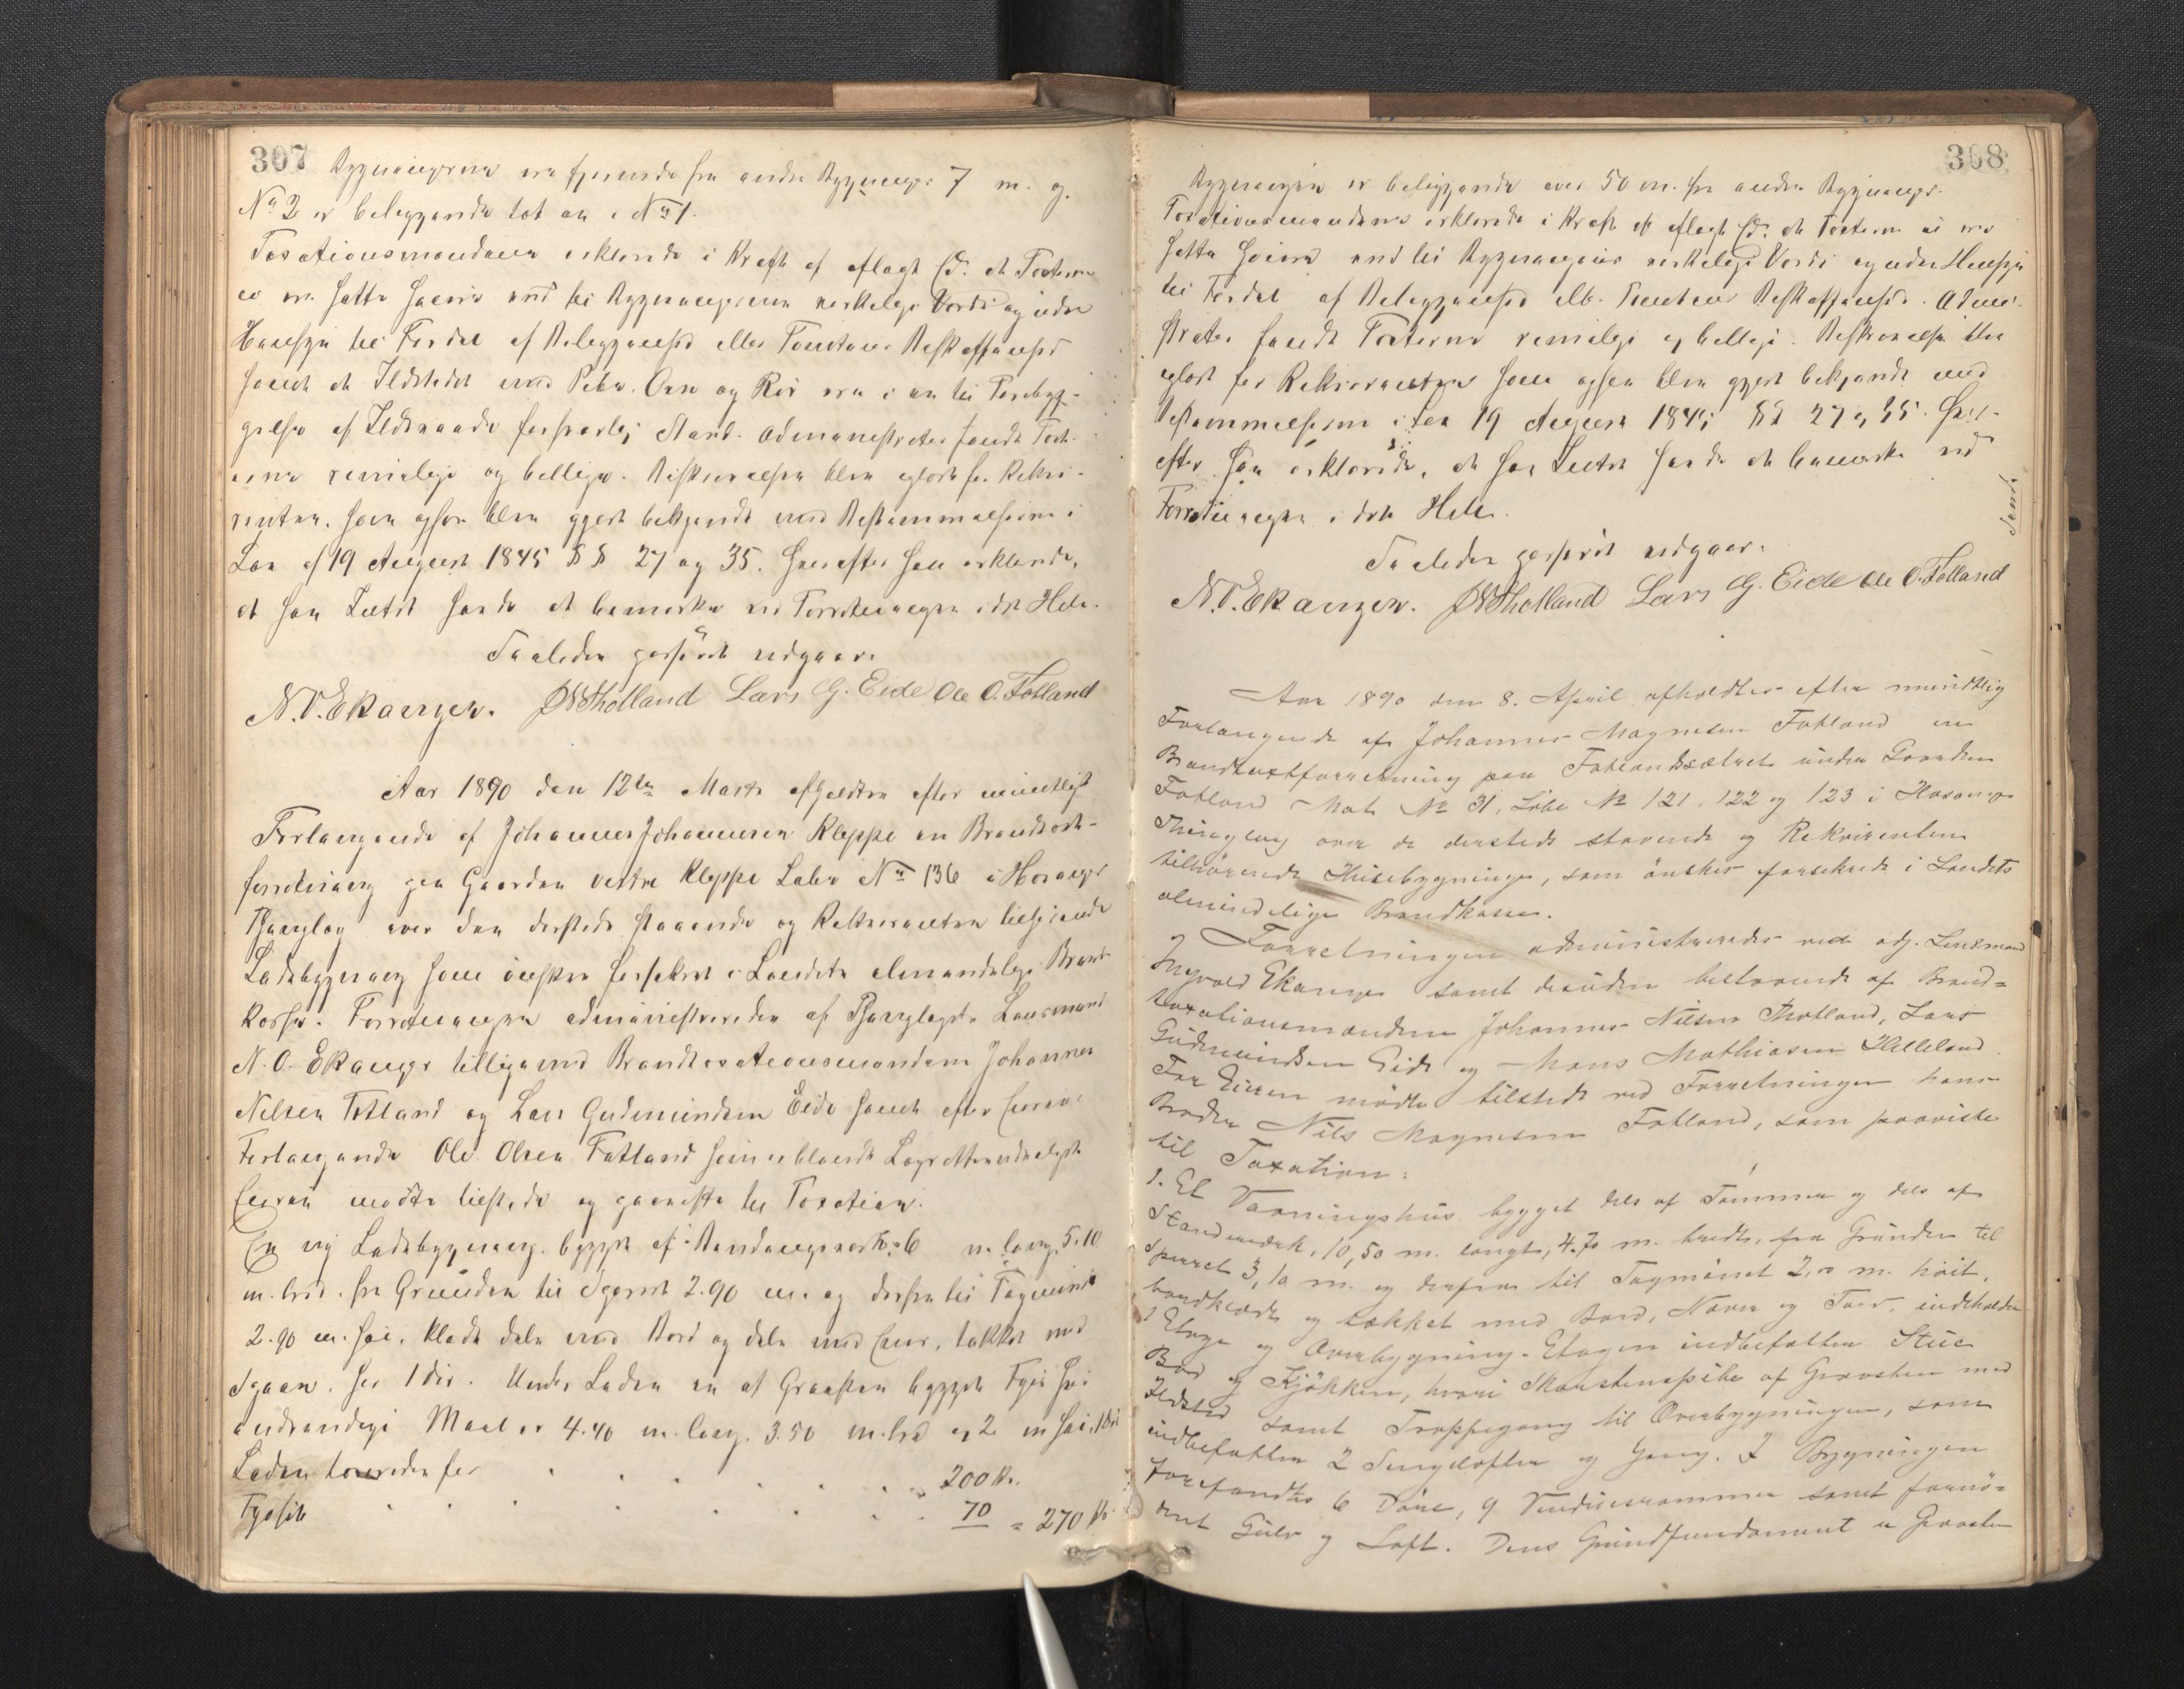 307
Bygningerne ere fjernede fra andre Bygninger 7 m. og
No 2 er beliggende tæt ved No 1.
Taxationsmændene erklærede i Kraft af aflagt Ed. at Taxterne
ei ere satte høiere end til Bygningernes virkelige Værdi og uden
Hensyn til Fordel af Beliggenhed eller Tomtens Beskaffenhed
samt at Ildstedet med Pibe, Ovn og Rør ere i en til Forebyg-
gelse af Ildsvaade forsvarlig Stand. Administrator fandt Taxt-
erne rimelige og billige. Beskrivelsen blev oplæst for Rekvi-
renten, som ogsaa blev gjort bekjendt med Bestemmelserne i
Lov af 19 August 1845 §§ 27 og 35. Hvorefter han erklærede,
at han Intet havde at bemærke ved Forretningen i det Hele.
Saaledes passeret udgaar.
N.O. Ekanger. JNTholland Lars G. Eide Ole O. Fotland
Aar 1890 den 12te Marts afholdtes efter mundtligt
Forlangende af Johannes Johannesen Kleppe en Brandtaxt-
forretning paa Gaarden vestre Kleppe Løbe No 136 i Hosanger
Thinglag over den dersteds staaende og Rekvirenten tilhørende
Ladebygning som ønskes forsikret i Landets almindelige Brand-
kasse. Forretningen administreredes af Thinglagets Lensmand
N. O. Ekanger tilligemed Brandtaxationsmændene Johannes
Nilsen Totland og Lars Gudmundsen Eide samt efter Eierens
Forlangende Ole Olsen Fotland som er blandt Lagrettemændene
Eieren mødte tilstede og paaviste til Taxation:
En ny Ladebygning, bygget af Bindingsværk, 6 m. lang, 5.10
m. bred. fra Grunden til Sparret 2.90 m. og derfra til Tagmønet
2.90 m. høi, klædt dels med Bord og dels med Ener, tækket med
Spaan. har 1 Dør. Under Laden er af Graasten bygget Fjøs hvis
indvendige Maal er 4.40 m. lang. 3.50 m. bred og 2 m høi, 1 Dør
Laden taxeredes for . . . . . . 200 Kr.
Fjøset . . . . . . . 70 = 270 Kr
308
Bygningen er beliggende over 50 m. fra andre Bygninger.
Taxationsmændene erklærede i Kraft af aflagt Ed. at Taxterne ei ere
satte høiere end til Bygningens virkelige Værdi og uden Hensyn
til Fordel af Beliggenhed eller Tomtens Beskaffenhed. Admini-
strator fandt Taxterne rimelige og billige. Beskrivelsen blev
oplæst for Rekvirenten som ogsaa blev gjort bekjendt med
Bestemmelserne i Lov 19 August 1845 §§ 27 og 35. Hvor-
efter han erklærede, at han Intet havde at bemærke ved
Forretningen i det Hele.
Saaledes passeret udgaar.
N.O. Ekanger. JNTholland Lars G. Eide Ole O. Fotland
Aar 1890 den 8. April afholdtes efter mundtlig
Forlangende af Johannes Magnesen Fotland en
Brandtaxtforretning paa Fotlandssætret under Gaarden
Fotland Mat. No 31, Løbe No 121, 122 og 123 i Hosanger
Thinglag over de dersteds staaende og Rekvirenten
tilhørende Husebygninger, som ønskes forsikrede i Landets
almindelige Brandkasse.
Forretningen administreredes ved adj. Lensmand
Ingvald Ekanger samt desuden tiltraadt af Brand-
taxationsmændene Johannes Nilsen Thotland, Lars
Gudmundsen Eide og Mons Mathiasen Helleland
For Eieren mødte tilstede ved Forretningen hans
Broder Nils Magnesen Fotland, som paaviste
til Taxation:
1. Et Vaaningshus bygget dels af Tømmer og dels af
Standværk, 10,50 m. langt, 4.70 m. bredt, fra Grunden til
Sparret 3,10 m. og derfra til Tagmønet 2,00 m. høit,
bordklædt og tækket med Bord, Næver og Torv. indeholder
1 Etage og Overbygning. Etagen indbefatter Stue
Bod og Kjøkken, hvori Skorstenspibe af Graasten med
Ildsted samt Trappegang til Overbygningen, som
indbefatter 2 Sengelofter og Gang. I Bygningen
forefandtes 6 Døre, 9 Vinduesrammer samt fornø-
dent Gulv og Loft. Dens Grundfundament er Graasten